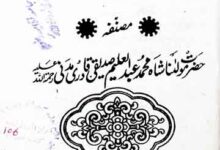 مصنفہ
حضرت مولٰنا شاہ محمد عبد العلیم صدیقی قادری مدنی رحمۃ اللہ علیہ
106